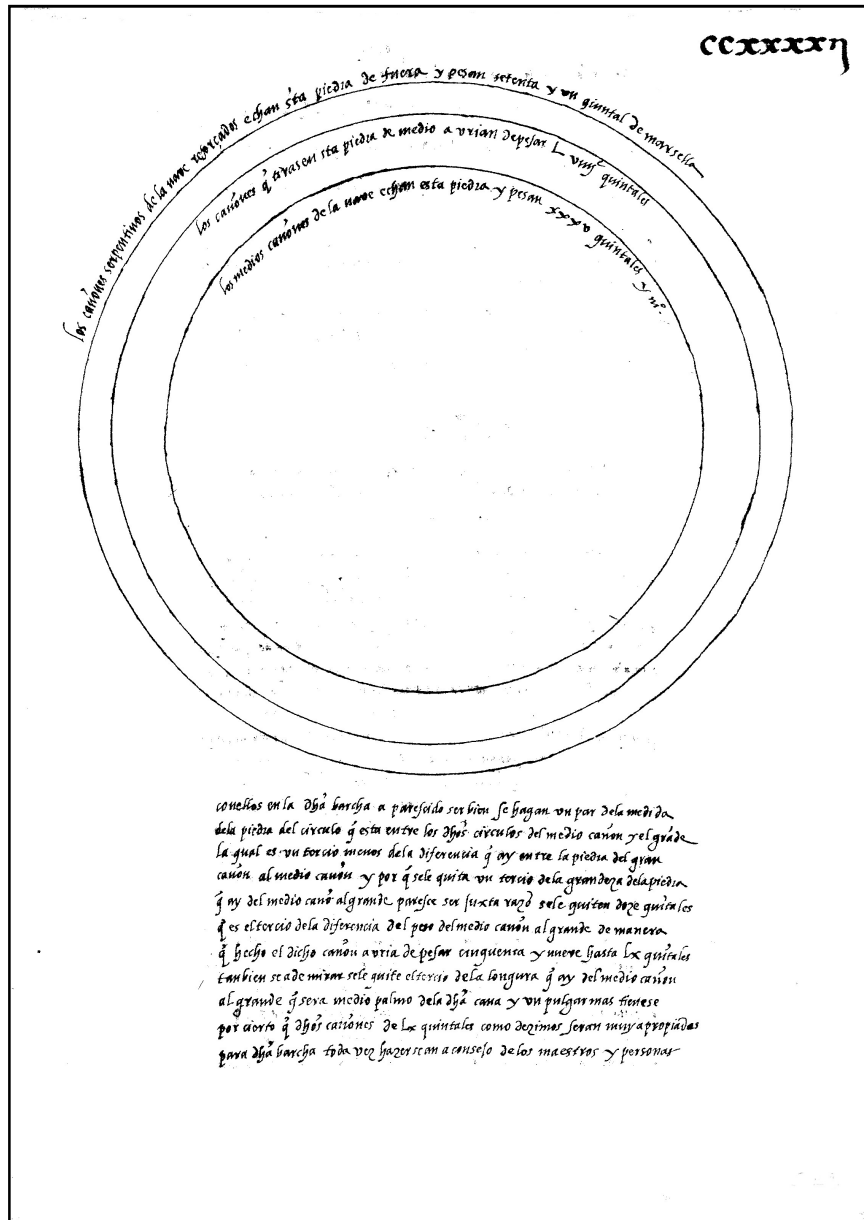 ccxxxxij
los cañones serpentinos de la nave reforçados echan sta piedra de fuera y pesan setenta y un quintal de marsella
los cañones q̃ tirasen sta piedra de medio avrian de pesar L viiij quintales
los medios cañones de la nave echan esta piedra y pesan xxxv quintales y mº.
conellos en la dhã barcha a parescido ser bien se hagan un par dela medida
dela piedra del circulo q̃ esta entre los dhõs circulos del medio cañon y el grãde
la qual es un tercio menos dela diferencia q̃ ay entre la piedra del gran
cañon al medio cañon y por q̃ sele quita un tercio dela grandeza dela piedra
q̃ ay del medio cañõ al grande paresce ser juxta razõ sele quiten doze quĩtales
q̃ es el tercio dela diferencia del peso del medio cañon al grande de manera
q̃ hecho el dicho cañon avria de pesar cinquenta y nueve hasta Lx quĩtales
tanbien se a de mirar sele quite el tercio dela longura q̃ ay del medio cañon
al grande q̃ sera medio palmo dela dhã cana y un pulgar mas tienese
por cierto q̃ dhõs cañones de Lx quintales como dezimos seran muy apropiados
para dhã barcha toda vez hazerse an a consejo de los maestros y personas